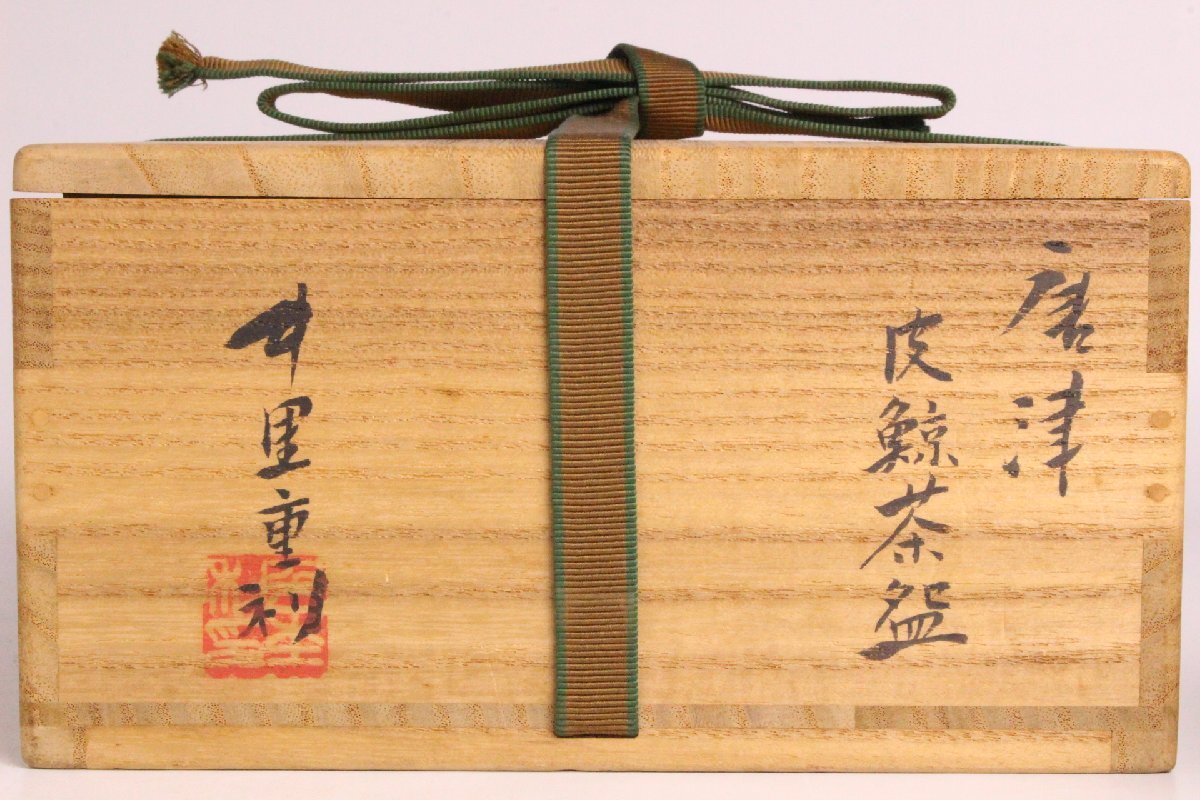 唐津
皮鯨茶盌
中里重利